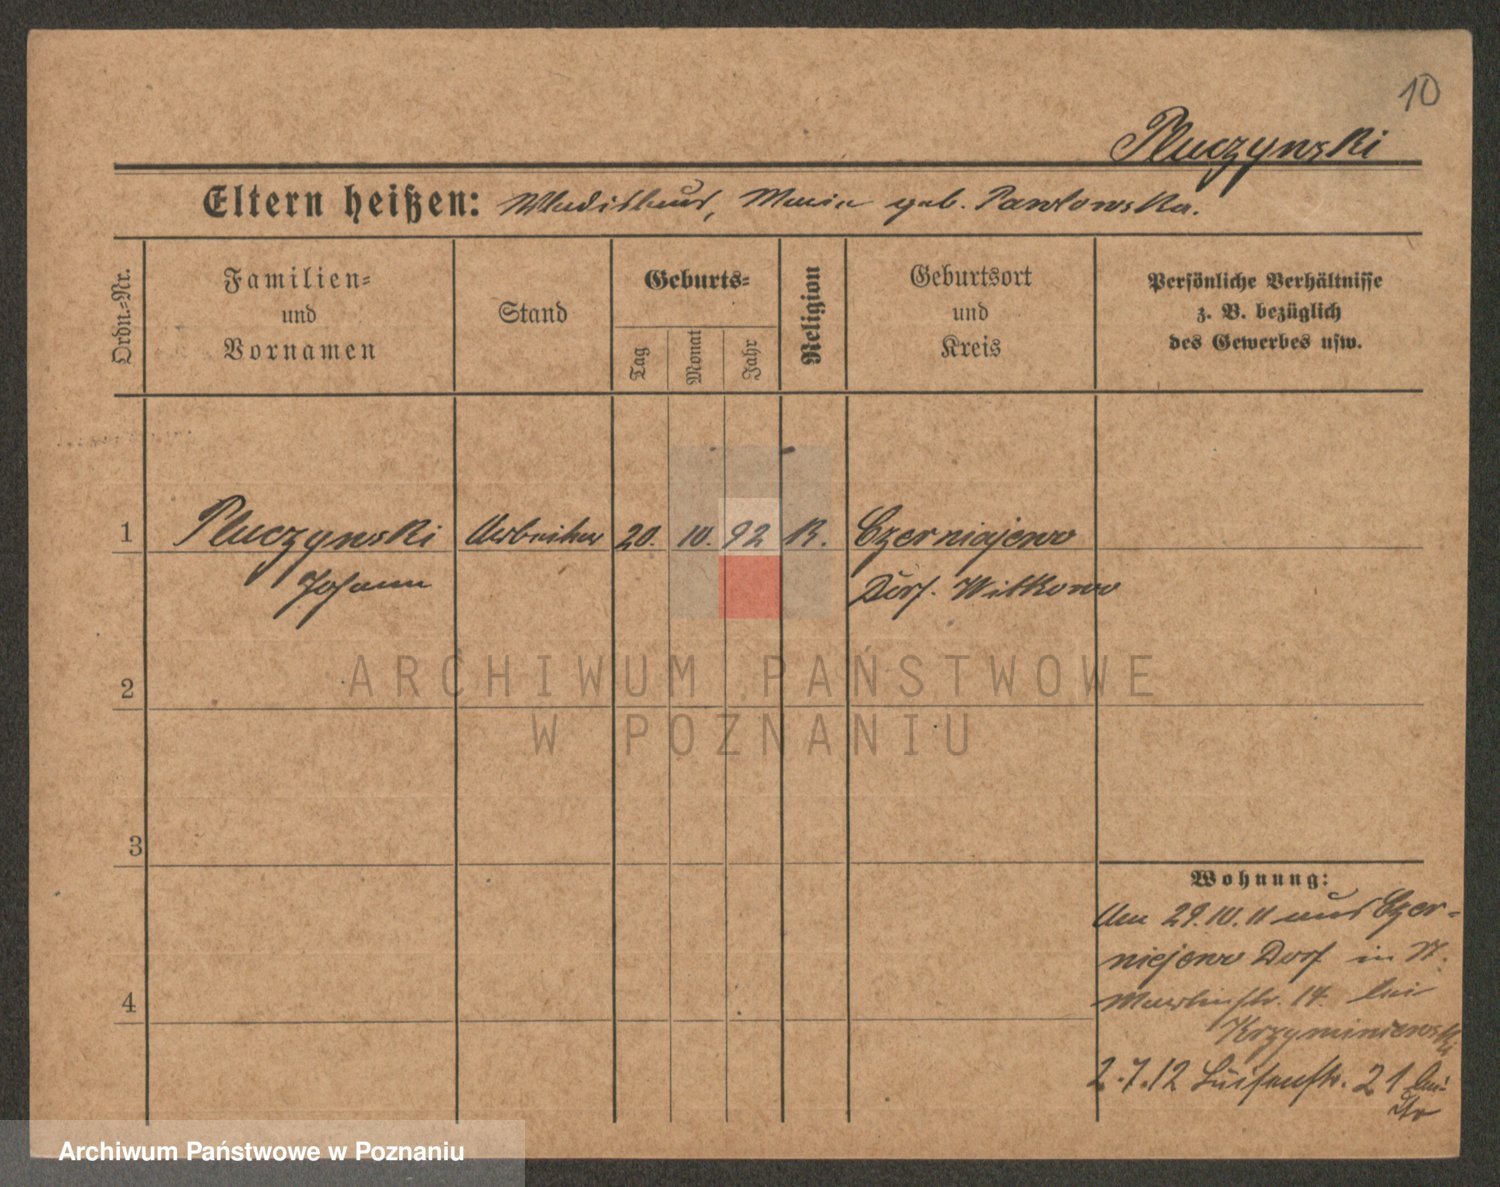 10
Pluczynski
Eltern heißen: Wladislaus, Maria geb. Pawlowska.
Ordn.-Nr.
Familien-
und
Vornamen
Stand
Geburts-
Tag
Monat
Jahr
Religion
Geburtsort
und
Kreis
Persönliche Verhältnisse
z. B. bezüglich
des Gewerbes usw.
1 Pluczynski Arbeiter 20. 10. 92 K. Czerniejewo
Johann Dorf. Witkowo
2
ARCHIWUM PAŃSTWOWE
W POZNANIU
3
4
Wohnung:
Am 29.10.11 aus Czer-
niejewo Dorf in St.
Martinstr. 14. bei
Krzyminiewski
2.7.12 Luisenstr. 21 bei
Archiwum Państwowe w Poznaniu